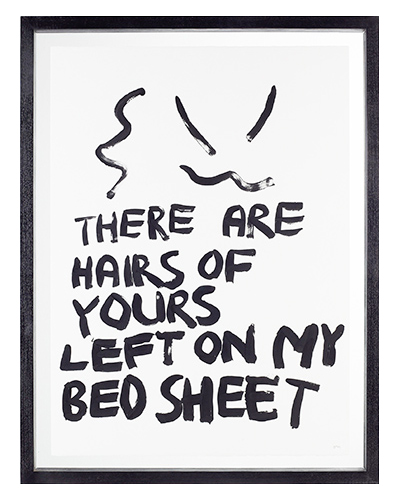 THERE ARE
HAIRS OF
YOURS
LEFT ON MY
BED SHEET